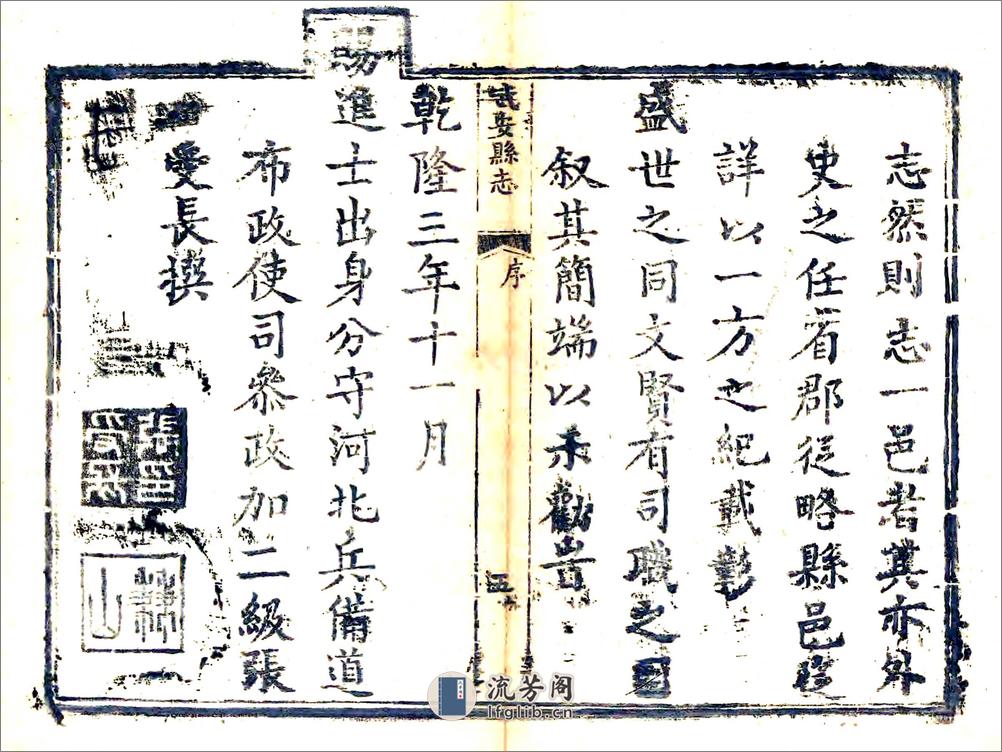 志然則志一邑者其亦外
史之任省郡從略縣邑從
詳以一方之紀載彰
盛世之同文賢有司職之
叙其簡端以示勸者
武安縣志
序
五
乾隆三年十一月
賜進士出身分守河北兵備道
布政使司參政加二級張
受長撰
流芳阁
lfglib.cn